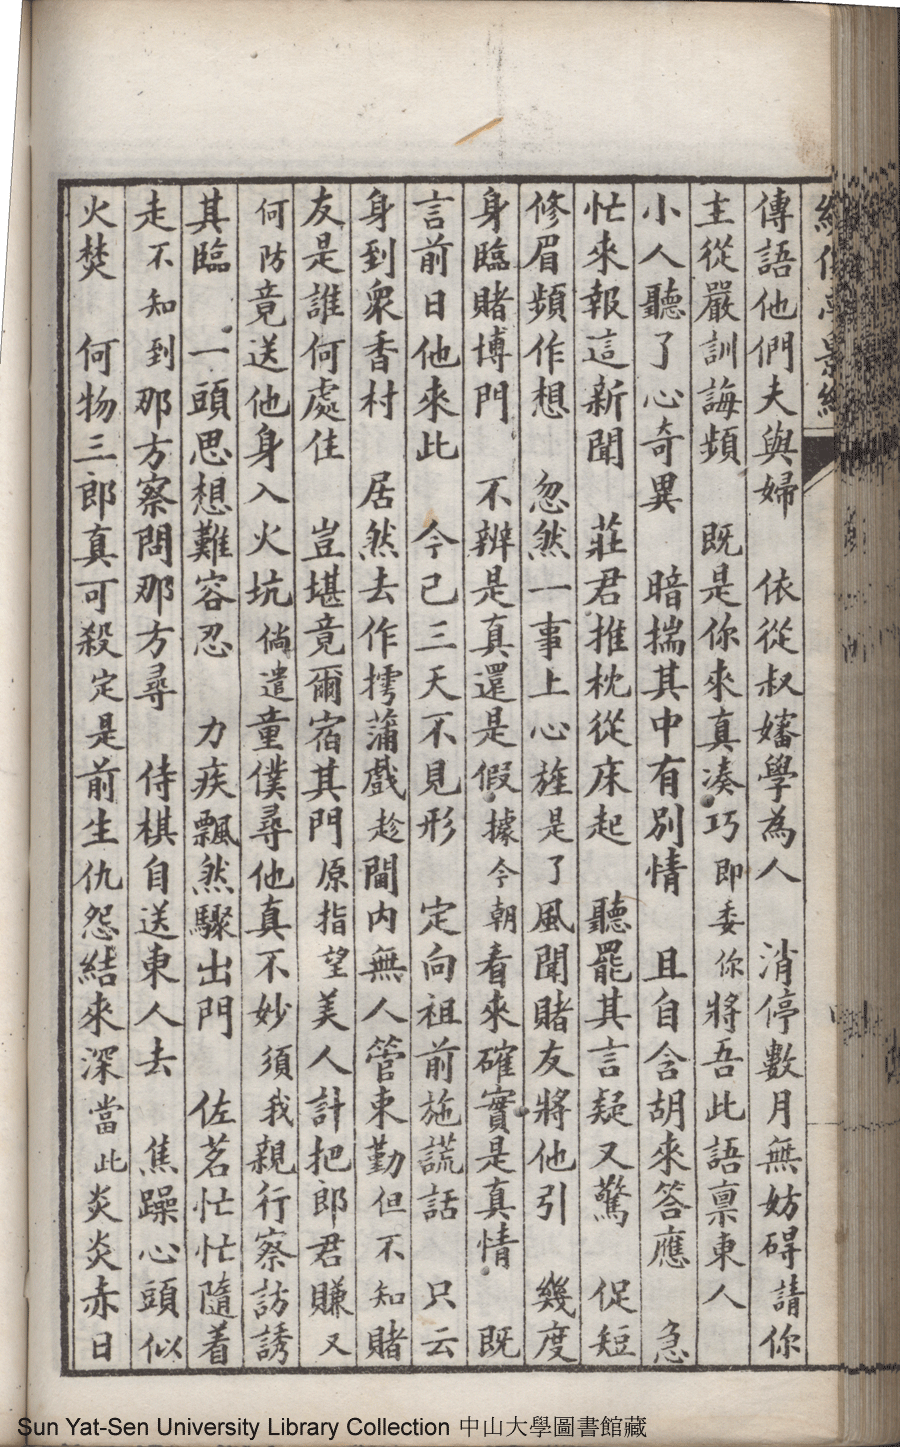 傳語他們夫與婦　依從叔嬸學為人　消停數月無妨碍請你
主從嚴訓誨頻　既是你來真湊巧即委你將吾此語禀東人
小人聽了心奇異　暗揣其中有別情　且自含胡來答應　急
忙來報這新聞　莊君推枕從床起　聽罷其言疑又驚　促短
修眉頻作想　忽然一事上心旌是了風聞賭友將他引　幾度
身臨賭博門　不辨是真還是假據今朝看來確實是真情　既
言前日他來此　今已三天不見形　定向祖前施謊話　只云
身到眾香村　居然去作摴蒲戲趁閫內無人管束勤但不知賭
友是誰何處住　豈堪竟爾宿其門原指望美人計把郎君賺又
何防竟送他身入火坑倘遣童僕尋他真不妙須我親行察訪誘
其臨　一頭思想難容忍　力疾飄然驟出門　佐茗忙忙隨着
走不知到那方察問那方尋　侍棋自送東人去　焦躁心頭似
火焚　何物三郎真可殺定是前生仇怨結來深當此炎炎赤日
Sun Yat-Sen University Library Collection 中山大學圖書館藏